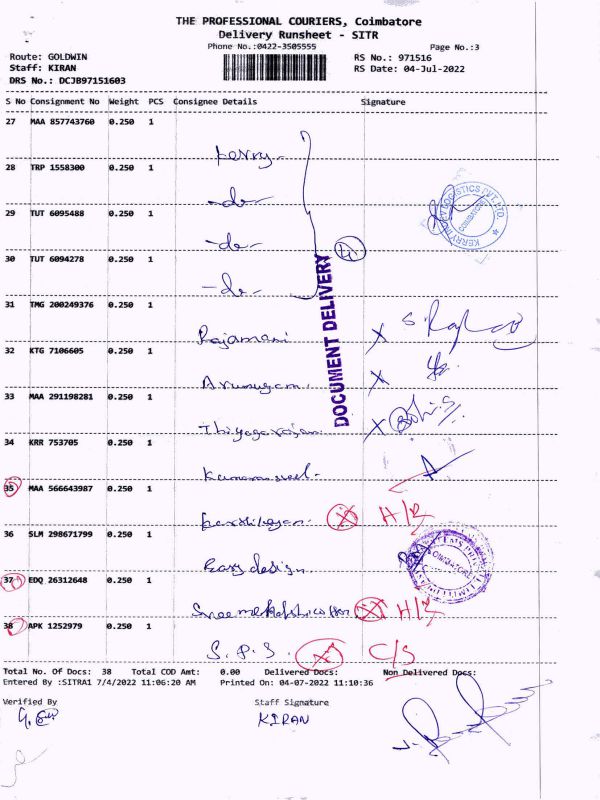 THE PROFESSIONAL COURIERS, Coimbatore
Delivery Runsheet - SITR
Phone No.:0422-3505555 Page No.:3
Route: GOLDWIN RS No.: 971516
Staff: KIRAN RS Date: 04-Jul-2022
DRS No.: DCJB97151603
S No Consignment No Weight PCS Consignee Details Signature
27 MAA 857743760 0.250 1
kerry-
28 TRP 1558300 0.250 1
-do-
29 TUT 6095488 0.250 1
-do-
30 TUT 6094278 0.250 1
-do-
DOCUMENT DELIVERY
31 TMG 200249376 0.250 1
Rajamani X
32 KTG 7106605 0.250 1
Arumugam. X
33 MAA 291198281 0.250 1
Thiyagarajan X
34 KRR 753705 0.250 1
35 MAA 566643987 0.250 1
X
36 SLM 298671799 0.250 1
Easy design
COIMBATORE
37 EDQ 26312648 0.250 1
X
38 APK 1252979 0.250 1
S.P.S. X C/S
Total No. Of Docs: 38 Total COD Amt: 0.00 Delivered Docs: Non Delivered Docs:
Entered By :SITRA1 7/4/2022 11:06:20 AM Printed On: 04-07-2022 11:10:36
Verified By Staff Signature
KIRAN